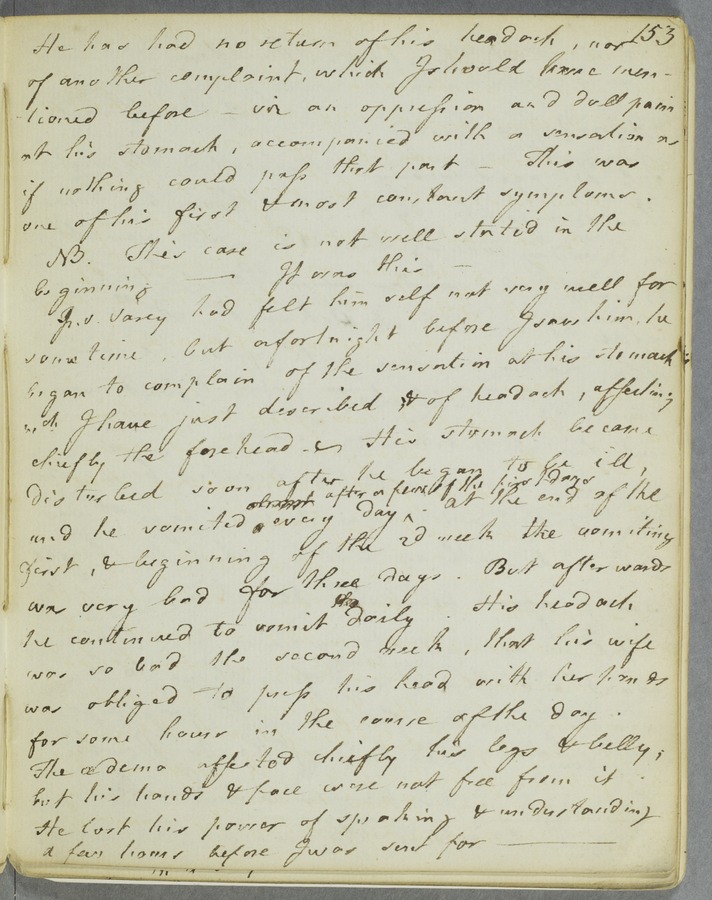 153
He has had no return of his headach, nor
of another complaint, which I should have men-
-tioned before - viz an oppression and dull pain
at his stomach, accompanied with a sensation as
if nothing could pass that part - This was
one of his first & most constant symptoms.
NB. This case is not well stated in the
beginning — It was this -
had felt him self not very well for
some time, but a fortnight before I saw him, he
began to complain of the sensation at his stomach
wch I have just described & of headach, affecting
chiefly the forehead - His stomach became
disturbed soon after he began to be ill,
after a few of the first days
and he vomited every day ^. at the end of the
first, & beginning of the 2d week the vomiting
was very bad for three days. But afterwards
he continued to vomit daily. His headach
was so bad the second week, that his wife
was obliged to press his head with her hands
for some hours in the course of the day.
The œdema affected chiefly his legs & belly;
but his hands & face were not free from it.
He lost his power of speaking & understanding
a few hours before I was sent for —